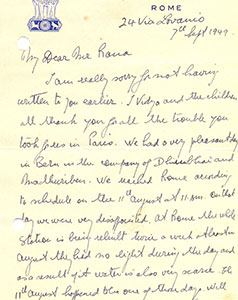 ROME
24 Via Lovanio
7th Sept 1949
My Dear Mr Rana
I am really sorry for not having
written to you earlier. I Vidya and the children
all thank you for all the trouble you
took for us in Paris. We had a very pleasant day
in Bern in the company of Dhirubhai and
Madhuriben. We reached Rome according
to schedule on the 11th August at 11 p.m. On that
day we were very disappointed, at Rome the whole
Station is being rebuilt twice a week at least in
August they had no light during the day and
as a result of it water is also very scarce. The
11th August happened to be one of those days. Will